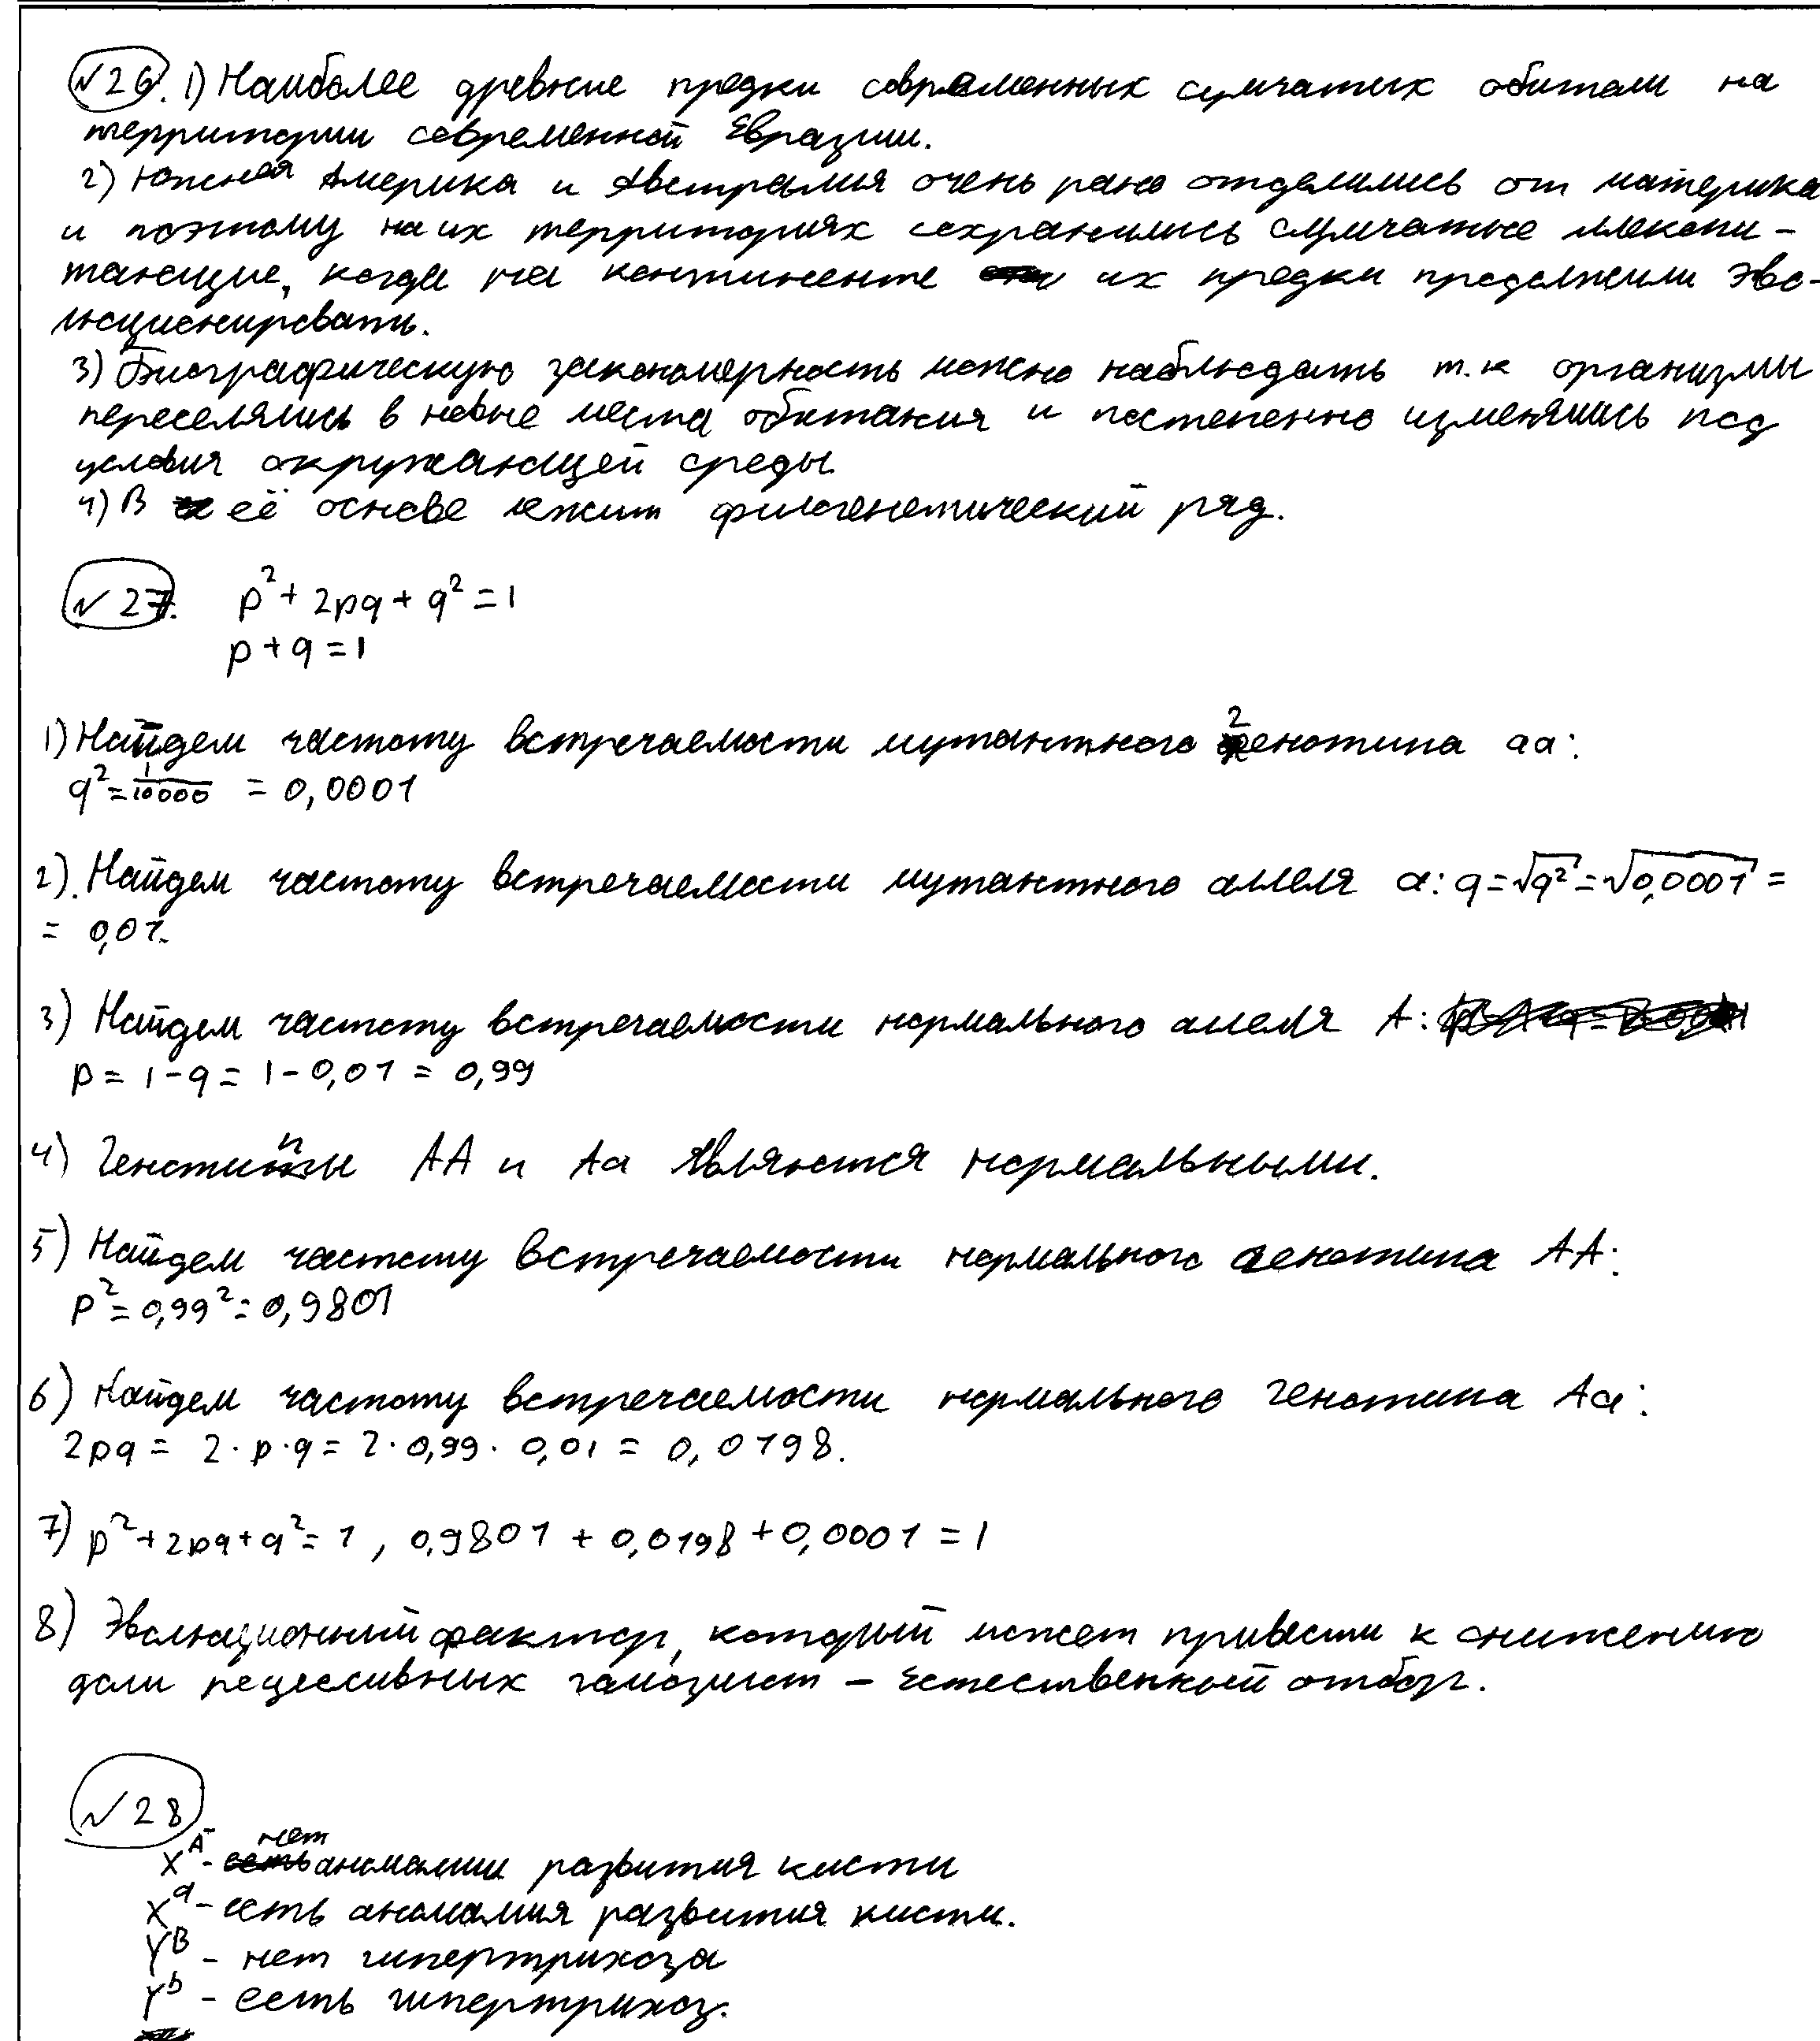 №26. 1) Наиболее древние предки современных сумчатых обитали на
территории современной Евразии.
2) Южная Америка и Австралия очень рано отделились от материка
и поэтому на их территориях сохранились сумчатые млекопи-
тающие, когда на континенте их предки продолжили эво-
люционировать.
3) Биографическую закономерность можно наблюдать т.к организмы
переселялись в новые места обитания и постепенно изменялись под
условия окружающей среды.
4) В её основе лежит филогенетический ряд.
№27. p²+2pq+q²=1
p+q=1
1) Найдем частоту встречаемости мутантного генотипа aa:
q²=1/10000 = 0,0001
2). Найдем частоту встречаемости мутантного аллеля a: q=√q²=√0,0001=
= 0,01.
3) Найдем частоту встречаемости нормального аллеля A:
p= 1-q= 1-0,01= 0,99
4) Генотипы AA и Aa являются нормальными.
5) Найдем частоту встречаемости нормального генотипа AA:
p²=0,99²=0,9801
6) Найдем частоту встречаемости нормального генотипа Aa:
2pq= 2·p·q= 2·0,99·0,01= 0,0198.
7) p²+2pq+q²=1, 0,9801+0,0198+0,0001=1
8) Эволюционный фактор, который может привести к снижению
доли рецессивных гомозигот – естественный отбор.
№28
Xᴬ- нет аномалии развития кисти
Xᵃ- есть аномалия развития кисти.
Yᴮ - нет гипертрихоза
Yᵇ - есть гипертрихоз.